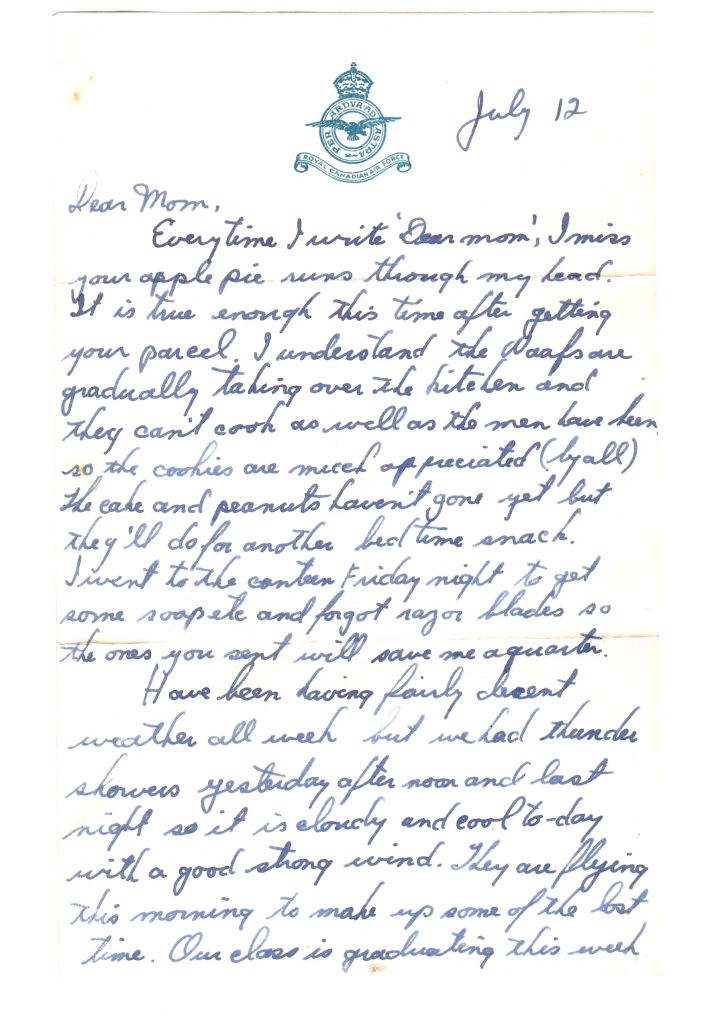 PER ARDVA AD ASTRA
ROYAL CANADIAN AIR FORCE
July 12
Dear Mom,
Everytime I write 'Dear mom', I miss
your apple pie runs through my head.
It is true enough this time after getting
your parcel. I understand the Waafs are
gradually taking over the kitchen and
they can't cook as well as the men have been
so the cookies are much appreciated (by all)
The cake and peanuts haven't gone yet but
they'll do for another bed time snack.
I went to the canteen Friday night to get
some soap etc and forgot razor blades so
the ones you sent will save me a quarter.
Have been having fairly decent
weather all week but we had thunder
showers yesterday after noon and last
night so it is cloudy and cool to-day
with a good strong wind. They are flying
this morning to make up some of the lost
time. Our class is graduating this week